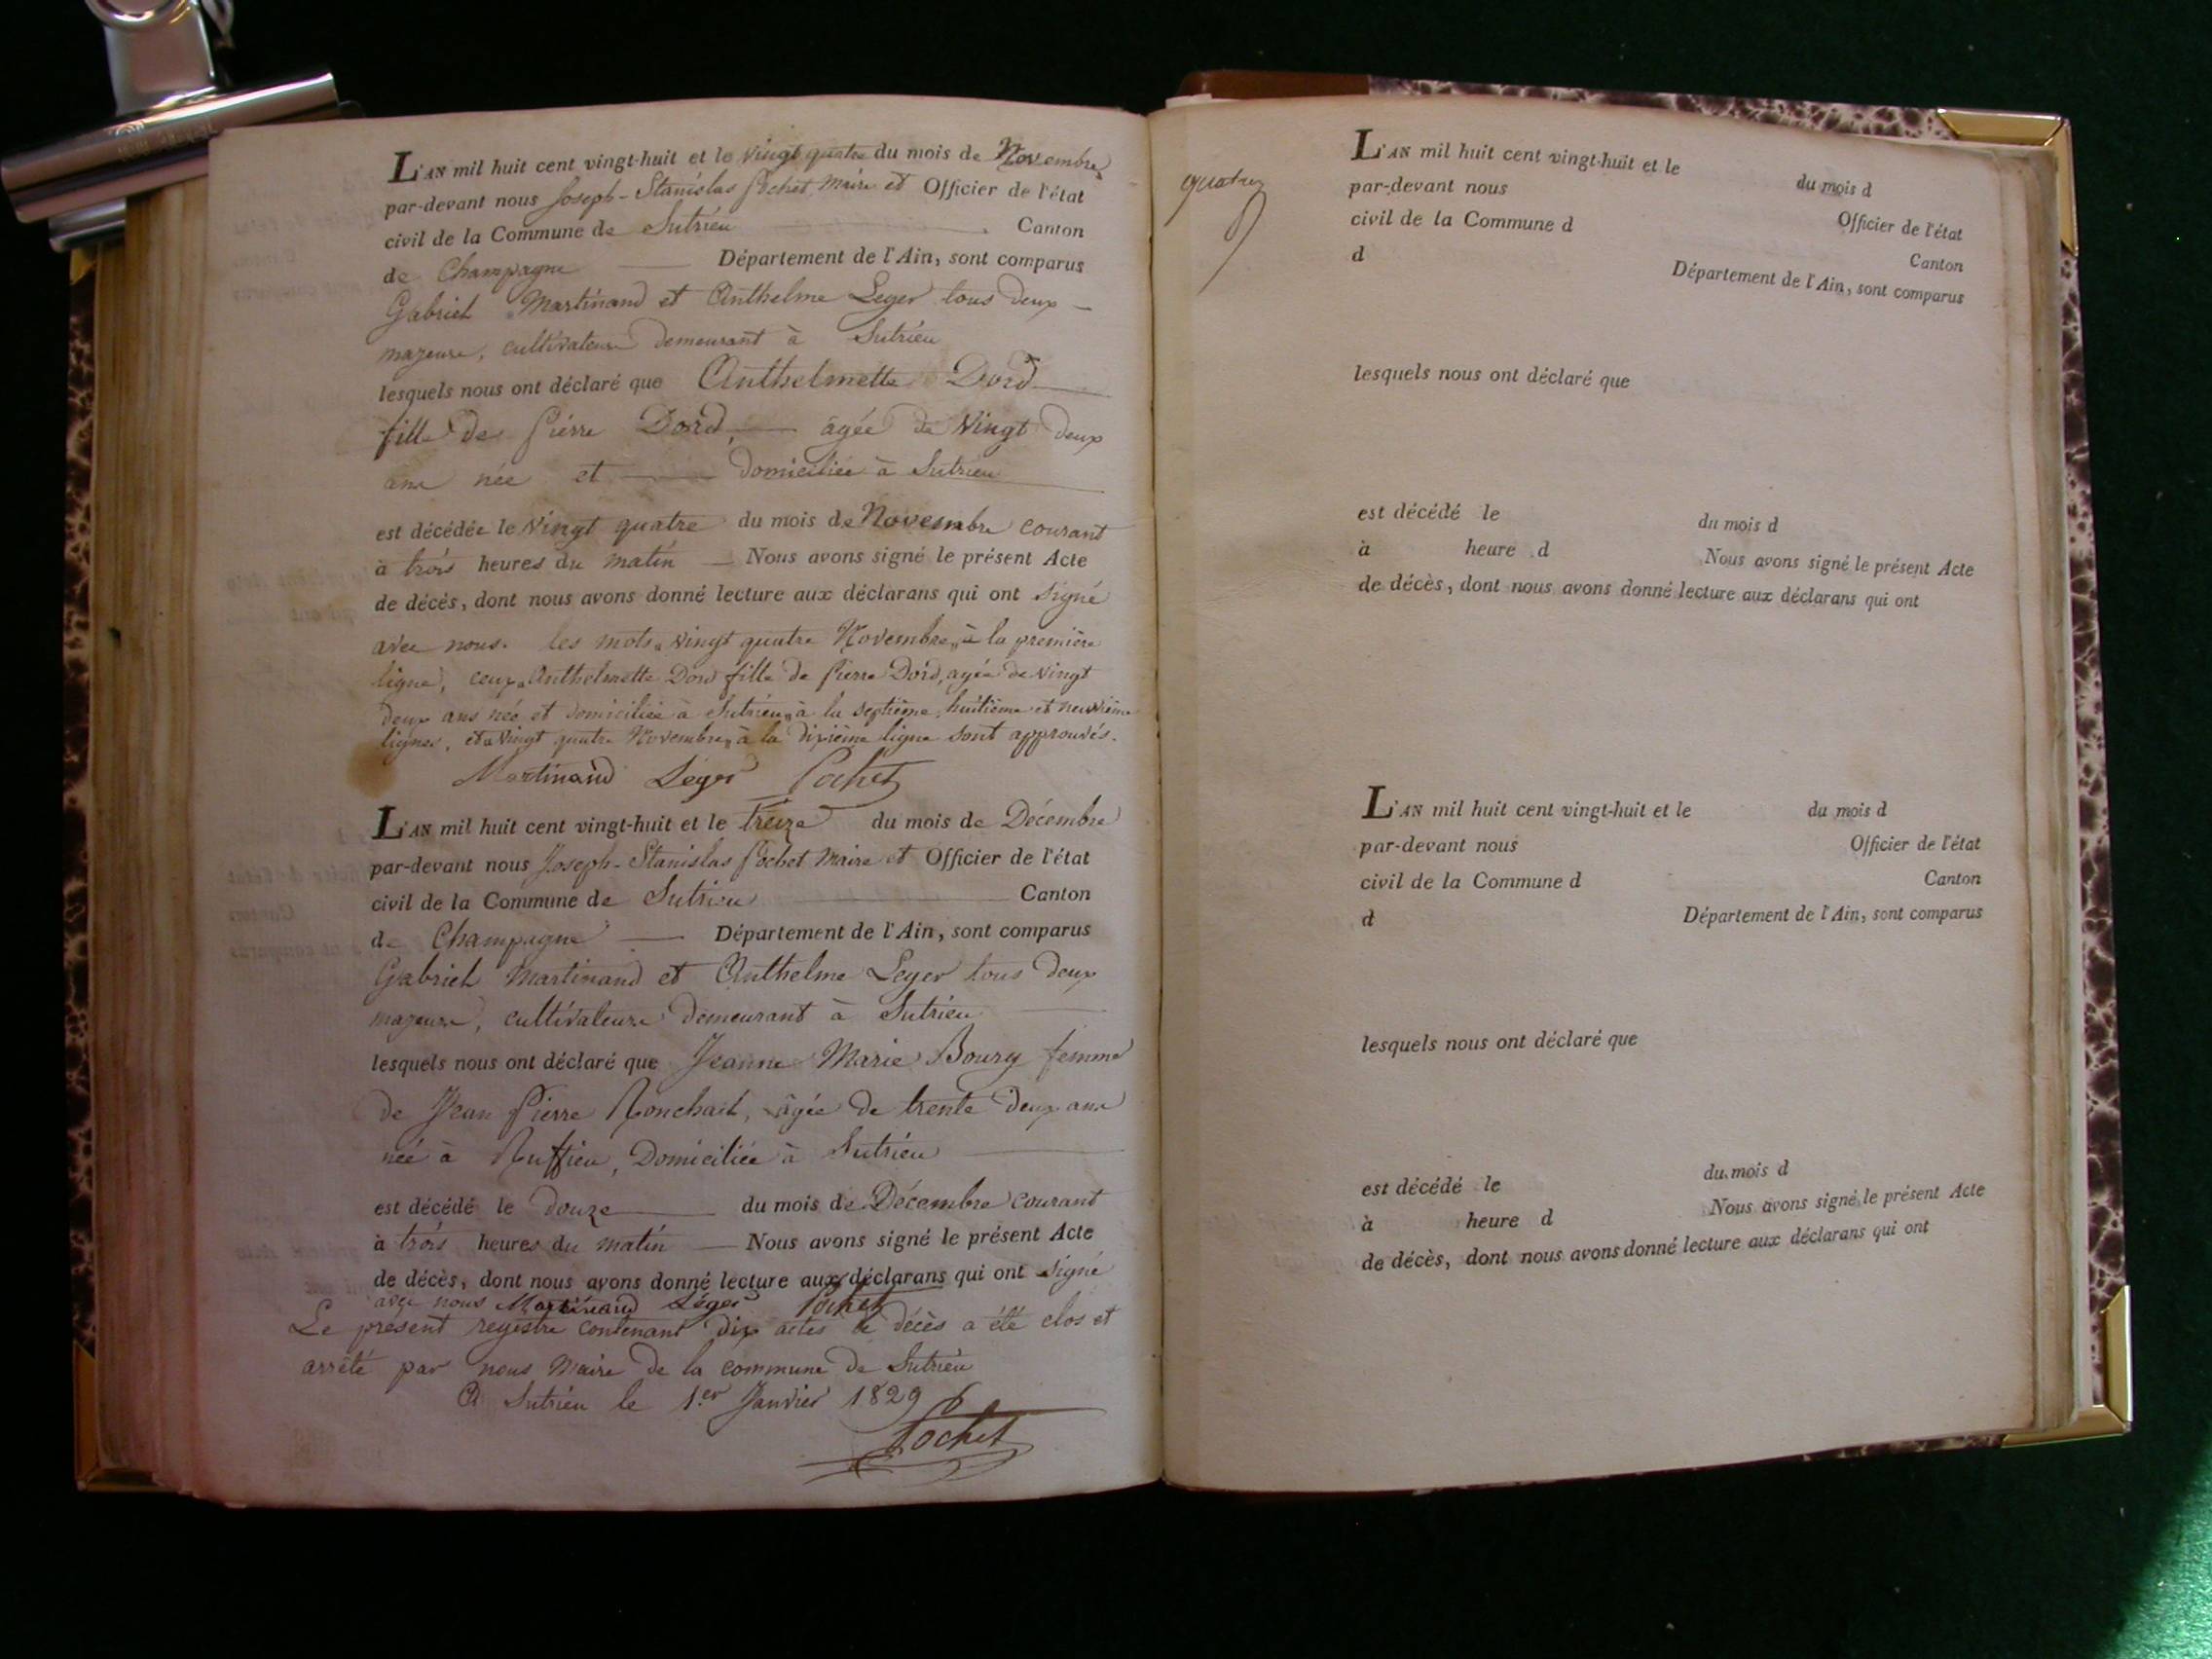 L'AN mil huit cent vingt-huit et le vingt quatre du mois de Novembre
par-devant nous Joseph-Stanislas Pochet Maire et Officier de l'état
civil de la Commune de Sutrieu Canton
de Champagne Département de l'Ain, sont comparus
Gabriel Martinand et Anthelme Leger tous deux
majeurs, cultivateurs demeurant à Sutrieu
lesquels nous ont déclaré que Anthelmette Dord
fille de Pierre Dord, âgée de vingt deux
ans née et domiciliée à Sutrieu
est décédée le vingt quatre du mois de Novembre courant
à trois heures du matin Nous avons signé le présent Acte
de décès, dont nous avons donné lecture aux déclarans qui ont signé
avec nous. les mots „ vingt quatre Novembre „ à la première
ligne, ceux „ Anthelmette Dord fille de Pierre Dord, agée de vingt
deux ans née et domiciliée à Sutrieu „ à la septième, huitième et neuvième
lignes, et „ vingt quatre Novembre „ à la dixième ligne sont approuvés.
Martinand Léger Pochet
L'AN mil huit cent vingt-huit et le treize du mois de Décembre
par-devant nous Joseph-Stanislas Pochet Maire et Officier de l'état
civil de la Commune de Sutrieu Canton
de Champagne Département de l'Ain, sont comparus
Gabriel Martinand et Anthelme Leger tous deux
majeurs, cultivateurs demeurant à Sutrieu
lesquels nous ont déclaré que Jeanne Marie Boury femme
de Jean Pierre Ronchail, âgée de trente deux ans
née à Ruffieu, Domiciliée à Sutrieu
est décédé le douze du mois de Décembre courant
à trois heures du matin Nous avons signé le présent Acte
de décès, dont nous avons donné lecture aux déclarans qui ont signé
avec nous Martinand Léger Pochet
Le présent registre contenant dix actes de décès a été clos et
arrêté par nous Maire de la commune de Sutrieu
A Sutrieu le 1er Janvier 1829
Pochet
L'AN mil huit cent vingt-huit et le du mois d
par-devant nous Officier de l'état
civil de la Commune d Canton
d Département de l'Ain, sont comparus
lesquels nous ont déclaré que
est décédé le du mois d
à heure d Nous avons signé le présent Acte
de décès, dont nous avons donné lecture aux déclarans qui ont
L'AN mil huit cent vingt-huit et le du mois d
par-devant nous Officier de l'état
civil de la Commune d Canton
d Département de l'Ain, sont comparus
lesquels nous ont déclaré que
est décédé le du mois d
à heure d Nous avons signé le présent Acte
de décès, dont nous avons donné lecture aux déclarans qui ont